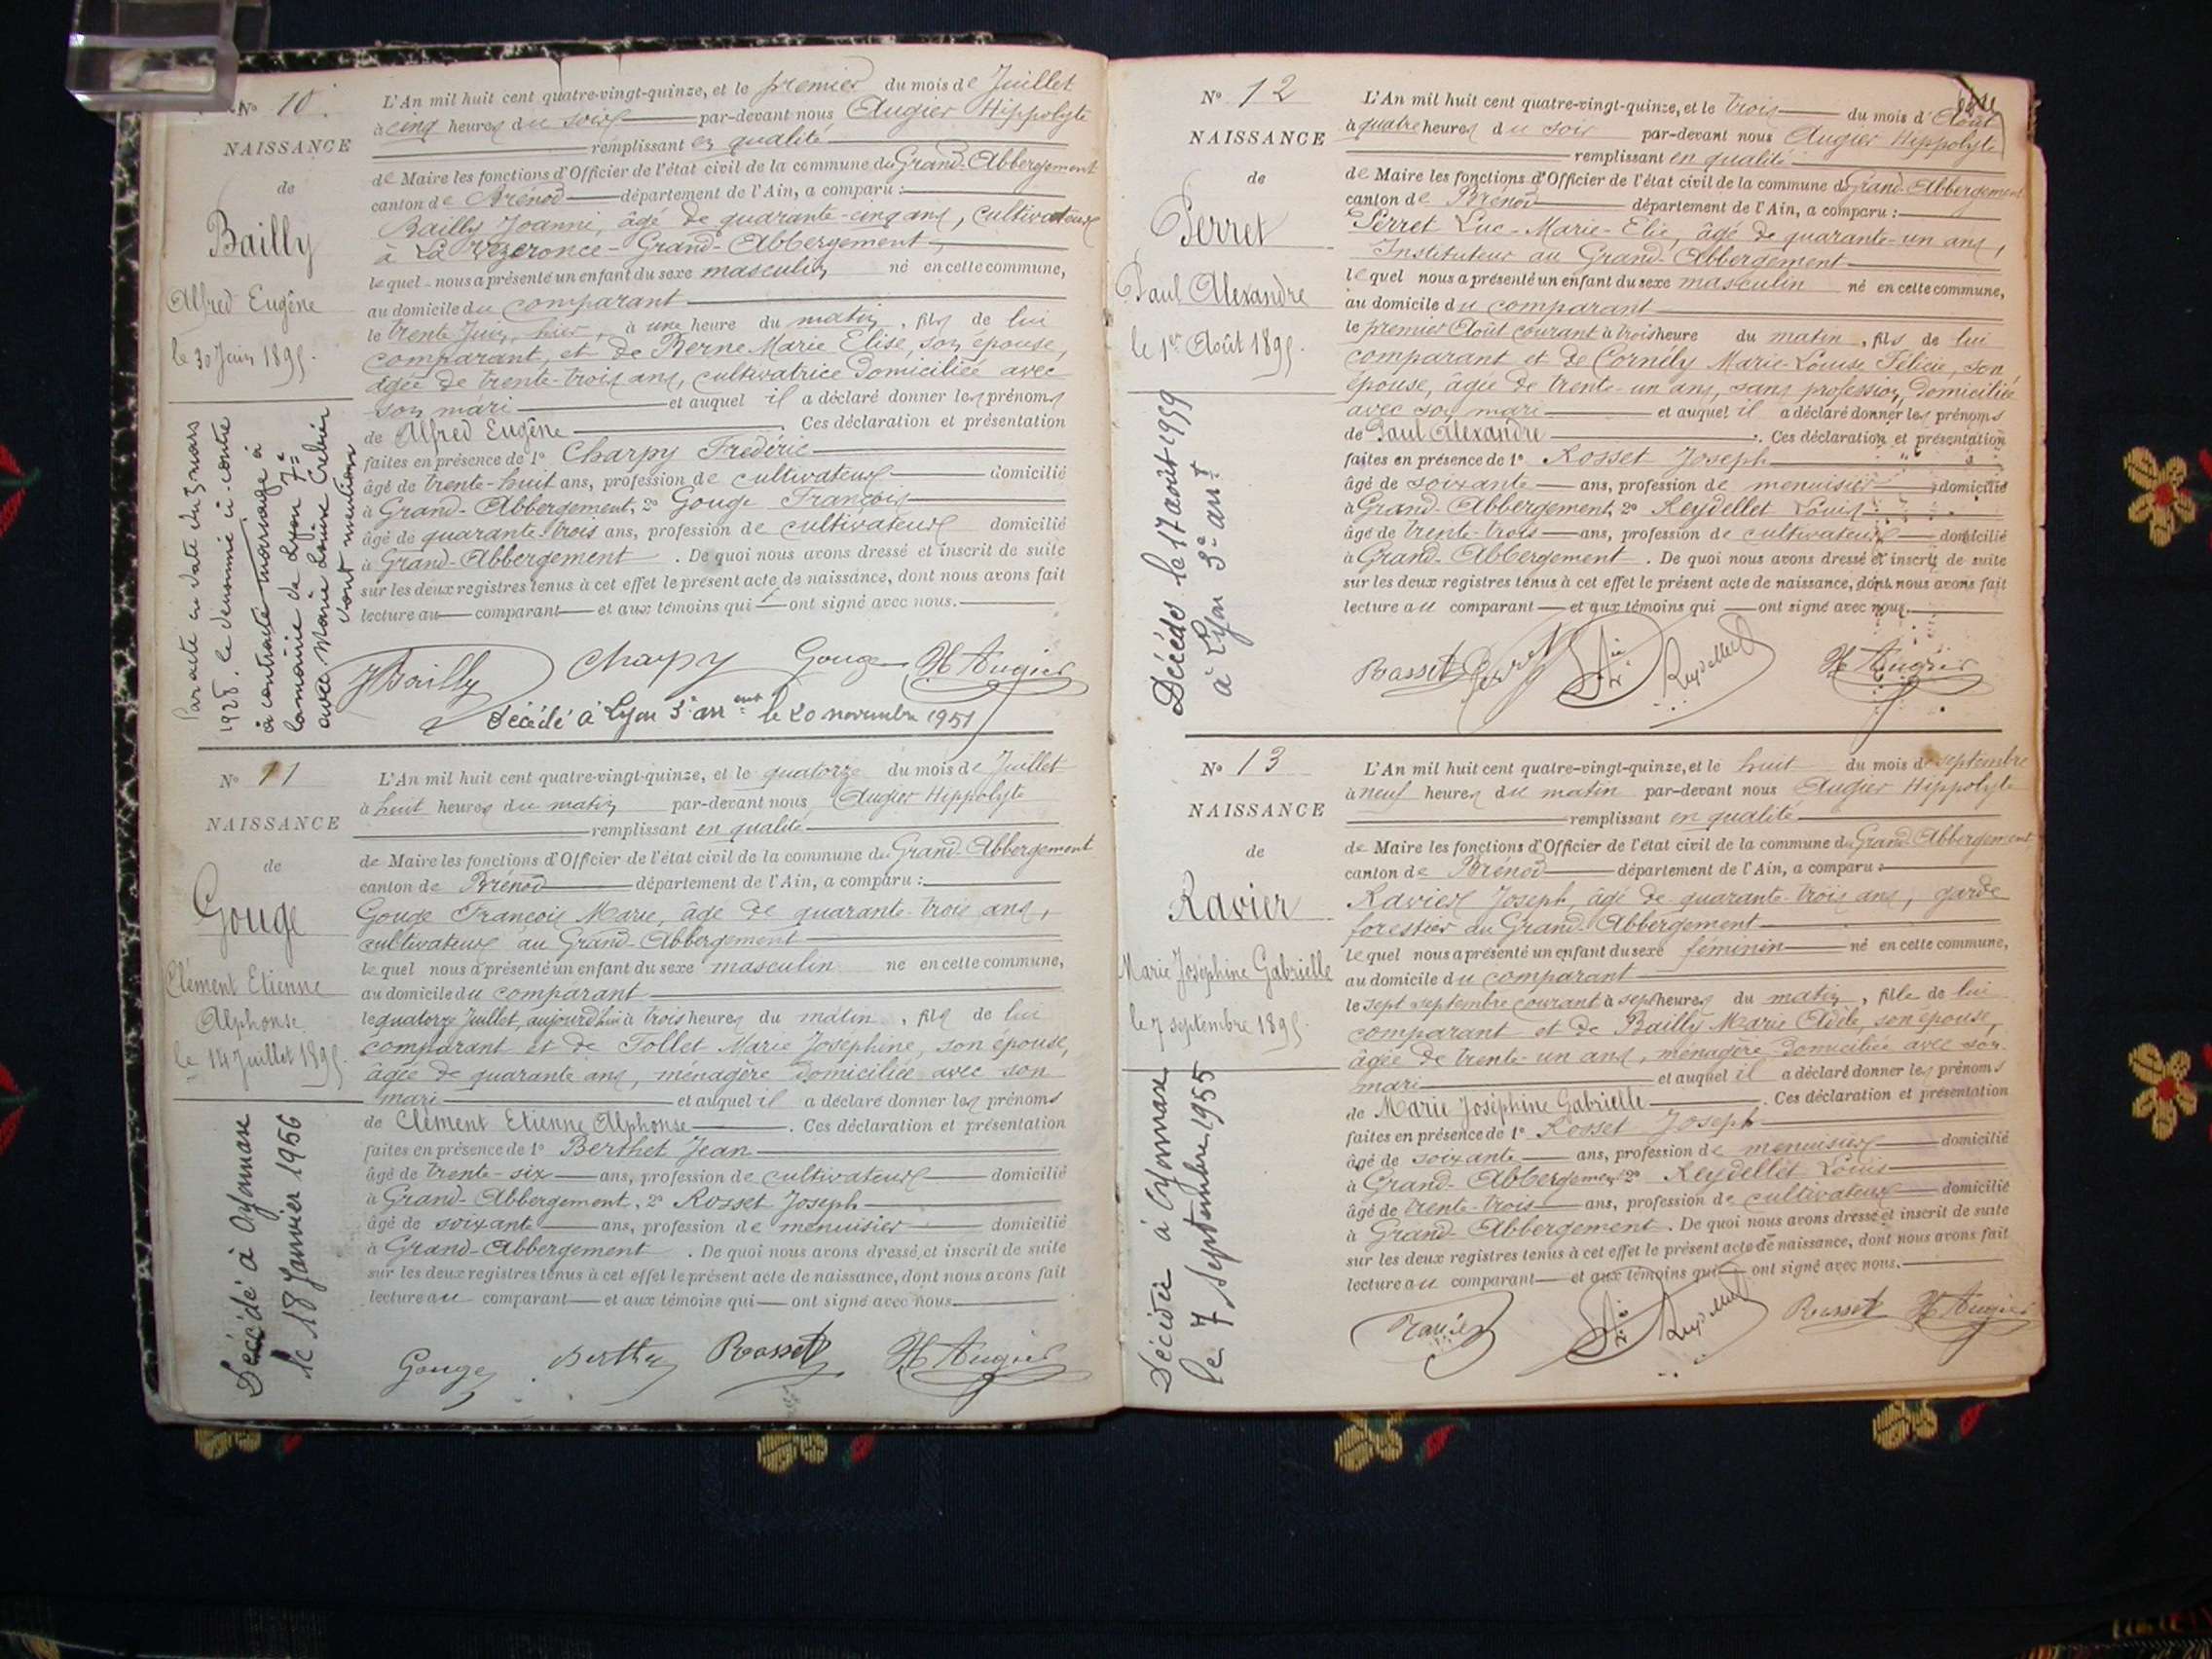 N° 10
NAISSANCE
de
Bailly
Alfred Eugêne
le 30 Juin 1895.
Par acte en date du 3 mars
1928. le dénommé ci-contre
à contracté mariage à
la mairie de Lyon 7e
avec Marie Louise
dont mention
L'An mil huit cent quatre-vingt-quinze, et le premier du mois de Juillet
à cinq heures du soir par-devant nous Augier Hippolyte
remplissant en qualité
de Maire les fonctions d'Officier de l'état civil de la commune du Grand-Abbergement
canton de Brénod département de l'Ain, a comparu :
Bailly Joanni, âgé de quarante-cinq ans, cultivateur
à La Vézeronce-Grand-Abbergement
lequel nous a présenté un enfant du sexe masculin né en cette commune,
au domicile du comparant
le trente Juin, hier, à une heure du matin, fils de lui
comparant, et de Berne Marie Elise, son épouse,
âgée de trente-trois ans, cultivatrice domiciliée avec
son mari et auquel il a déclaré donner les prénoms
de Alfred Eugêne. Ces déclaration et présentation
faites en présence de 1° Charpy Frédéric
âgé de trente-huit ans, profession de cultivateur domicilié
à Grand-Abbergement, 2° Gouge François
âgé de quarante trois ans, profession de cultivateur domicilié
à Grand-Abbergement. De quoi nous avons dressé et inscrit de suite
sur les deux registres tenus à cet effet le présent acte de naissance, dont nous avons fait
lecture au comparant et aux témoins qui ont signé avec nous.
JBailly Charpy Gouge H Augier
Décédé à Lyon 3e arr.ent le 20 novembre 1951
N° 11
NAISSANCE
de
Gouge
Clément Etienne
Alphonse
le 14 Juillet 1895.
Décédé à Oyonnax
le 18 Janvier 1956
L'An mil huit cent quatre-vingt-quinze, et le quatorze du mois de Juillet
à huit heures du matin par-devant nous Augier Hippolyte
remplissant en qualité
de Maire les fonctions d'Officier de l'état civil de la commune du Grand-Abbergement
canton de Brénod département de l'Ain, a comparu :
Gouge François Marie, âgé de quarante-trois ans,
cultivateur au Grand-Abbergement
lequel nous a présenté un enfant du sexe masculin né en cette commune,
au domicile du comparant
le quatorze Juillet, aujourd'hui à trois heures du matin, fils de lui
comparant et de Tollet Marie Joséphine, son épouse,
âgée de quarante ans, ménagère domiciliée avec son
mari et auquel il a déclaré donner les prénoms
de Clément Etienne Alphonse. Ces déclaration et présentation
faites en présence de 1° Berthet Jean
âgé de trente-six ans, profession de cultivateur domicilié
à Grand-Abbergement, 2° Rosset Joseph
âgé de soixante ans, profession de menuisier domicilié
à Grand-Abbergement. De quoi nous avons dressé et inscrit de suite
sur les deux registres tenus à cet effet le présent acte de naissance, dont nous avons fait
lecture au comparant et aux témoins qui ont signé avec nous.
Gouge Berthet Rosset H Augier
N° 12
NAISSANCE
de
Perret
Paul Alexandre
le 1er Août 1895.
Décédé le 17 août 1959
à Lyon 3e arrt
L'An mil huit cent quatre-vingt-quinze, et le trois du mois d'Août
à quatre heures du soir par-devant nous Augier Hippolyte
remplissant en qualité
de Maire les fonctions d'Officier de l'état civil de la commune du Grand-Abbergement
canton de Brénod département de l'Ain, a comparu :
Perret Luc-Marie-Elie, âgé de quarante-un ans,
Instituteur au Grand-Abbergement
lequel nous a présenté un enfant du sexe masculin né en cette commune,
au domicile du comparant
le premier Août courant à trois heure du matin, fils de lui
comparant et de Cornély Marie-Louise Félicie, son
épouse, âgée de trente-un ans, sans profession, domiciliée
avec son mari et auquel il a déclaré donner les prénoms
de Paul Alexandre. Ces déclaration et présentation
faites en présence de 1° Rosset Joseph
âgé de soixante ans, profession de menuisier domicilié
à Grand-Abbergement, 2° Reydellet Louis
âgé de trente-trois ans, profession de cultivateur domicilié
à Grand-Abbergement. De quoi nous avons dressé et inscrit de suite
sur les deux registres tenus à cet effet le présent acte de naissance, dont nous avons fait
lecture au comparant et aux témoins qui ont signé avec nous.
Rosset Perret Reydellet H Augier
N° 13
NAISSANCE
de
Ravier
Marie Joséphine Gabrielle
le 7 septembre 1895.
Décédée à Oyonnax
le 7 Septembre 1955
L'An mil huit cent quatre-vingt-quinze, et le huit du mois de septembre
à neuf heures du matin par-devant nous Augier Hippolyte
remplissant en qualité
de Maire les fonctions d'Officier de l'état civil de la commune du Grand-Abbergement
canton de Brénod département de l'Ain, a comparu :
Ravier Joseph, âgé de quarante-trois ans, garde
forestier au Grand-Abbergement
lequel nous a présenté un enfant du sexe féminin né en cette commune,
au domicile du comparant
le sept septembre courant à sept heures du matin, fille de lui
comparant et de Bailly Marie Adèle, son épouse,
âgée de trente-un ans, ménagère domiciliée avec son
mari et auquel il a déclaré donner les prénoms
de Marie Joséphine Gabrielle. Ces déclaration et présentation
faites en présence de 1° Rosset Joseph
âgé de soixante ans, profession de menuisier domicilié
à Grand-Abbergement 2° Reydellet Louis
âgé de trente-trois ans, profession de cultivateur domicilié
à Grand-Abbergement. De quoi nous avons dressé et inscrit de suite
sur les deux registres tenus à cet effet le présent acte de naissance, dont nous avons fait
lecture au comparant et aux témoins qui ont signé avec nous.
Ravier Reydellet Rosset H Augier